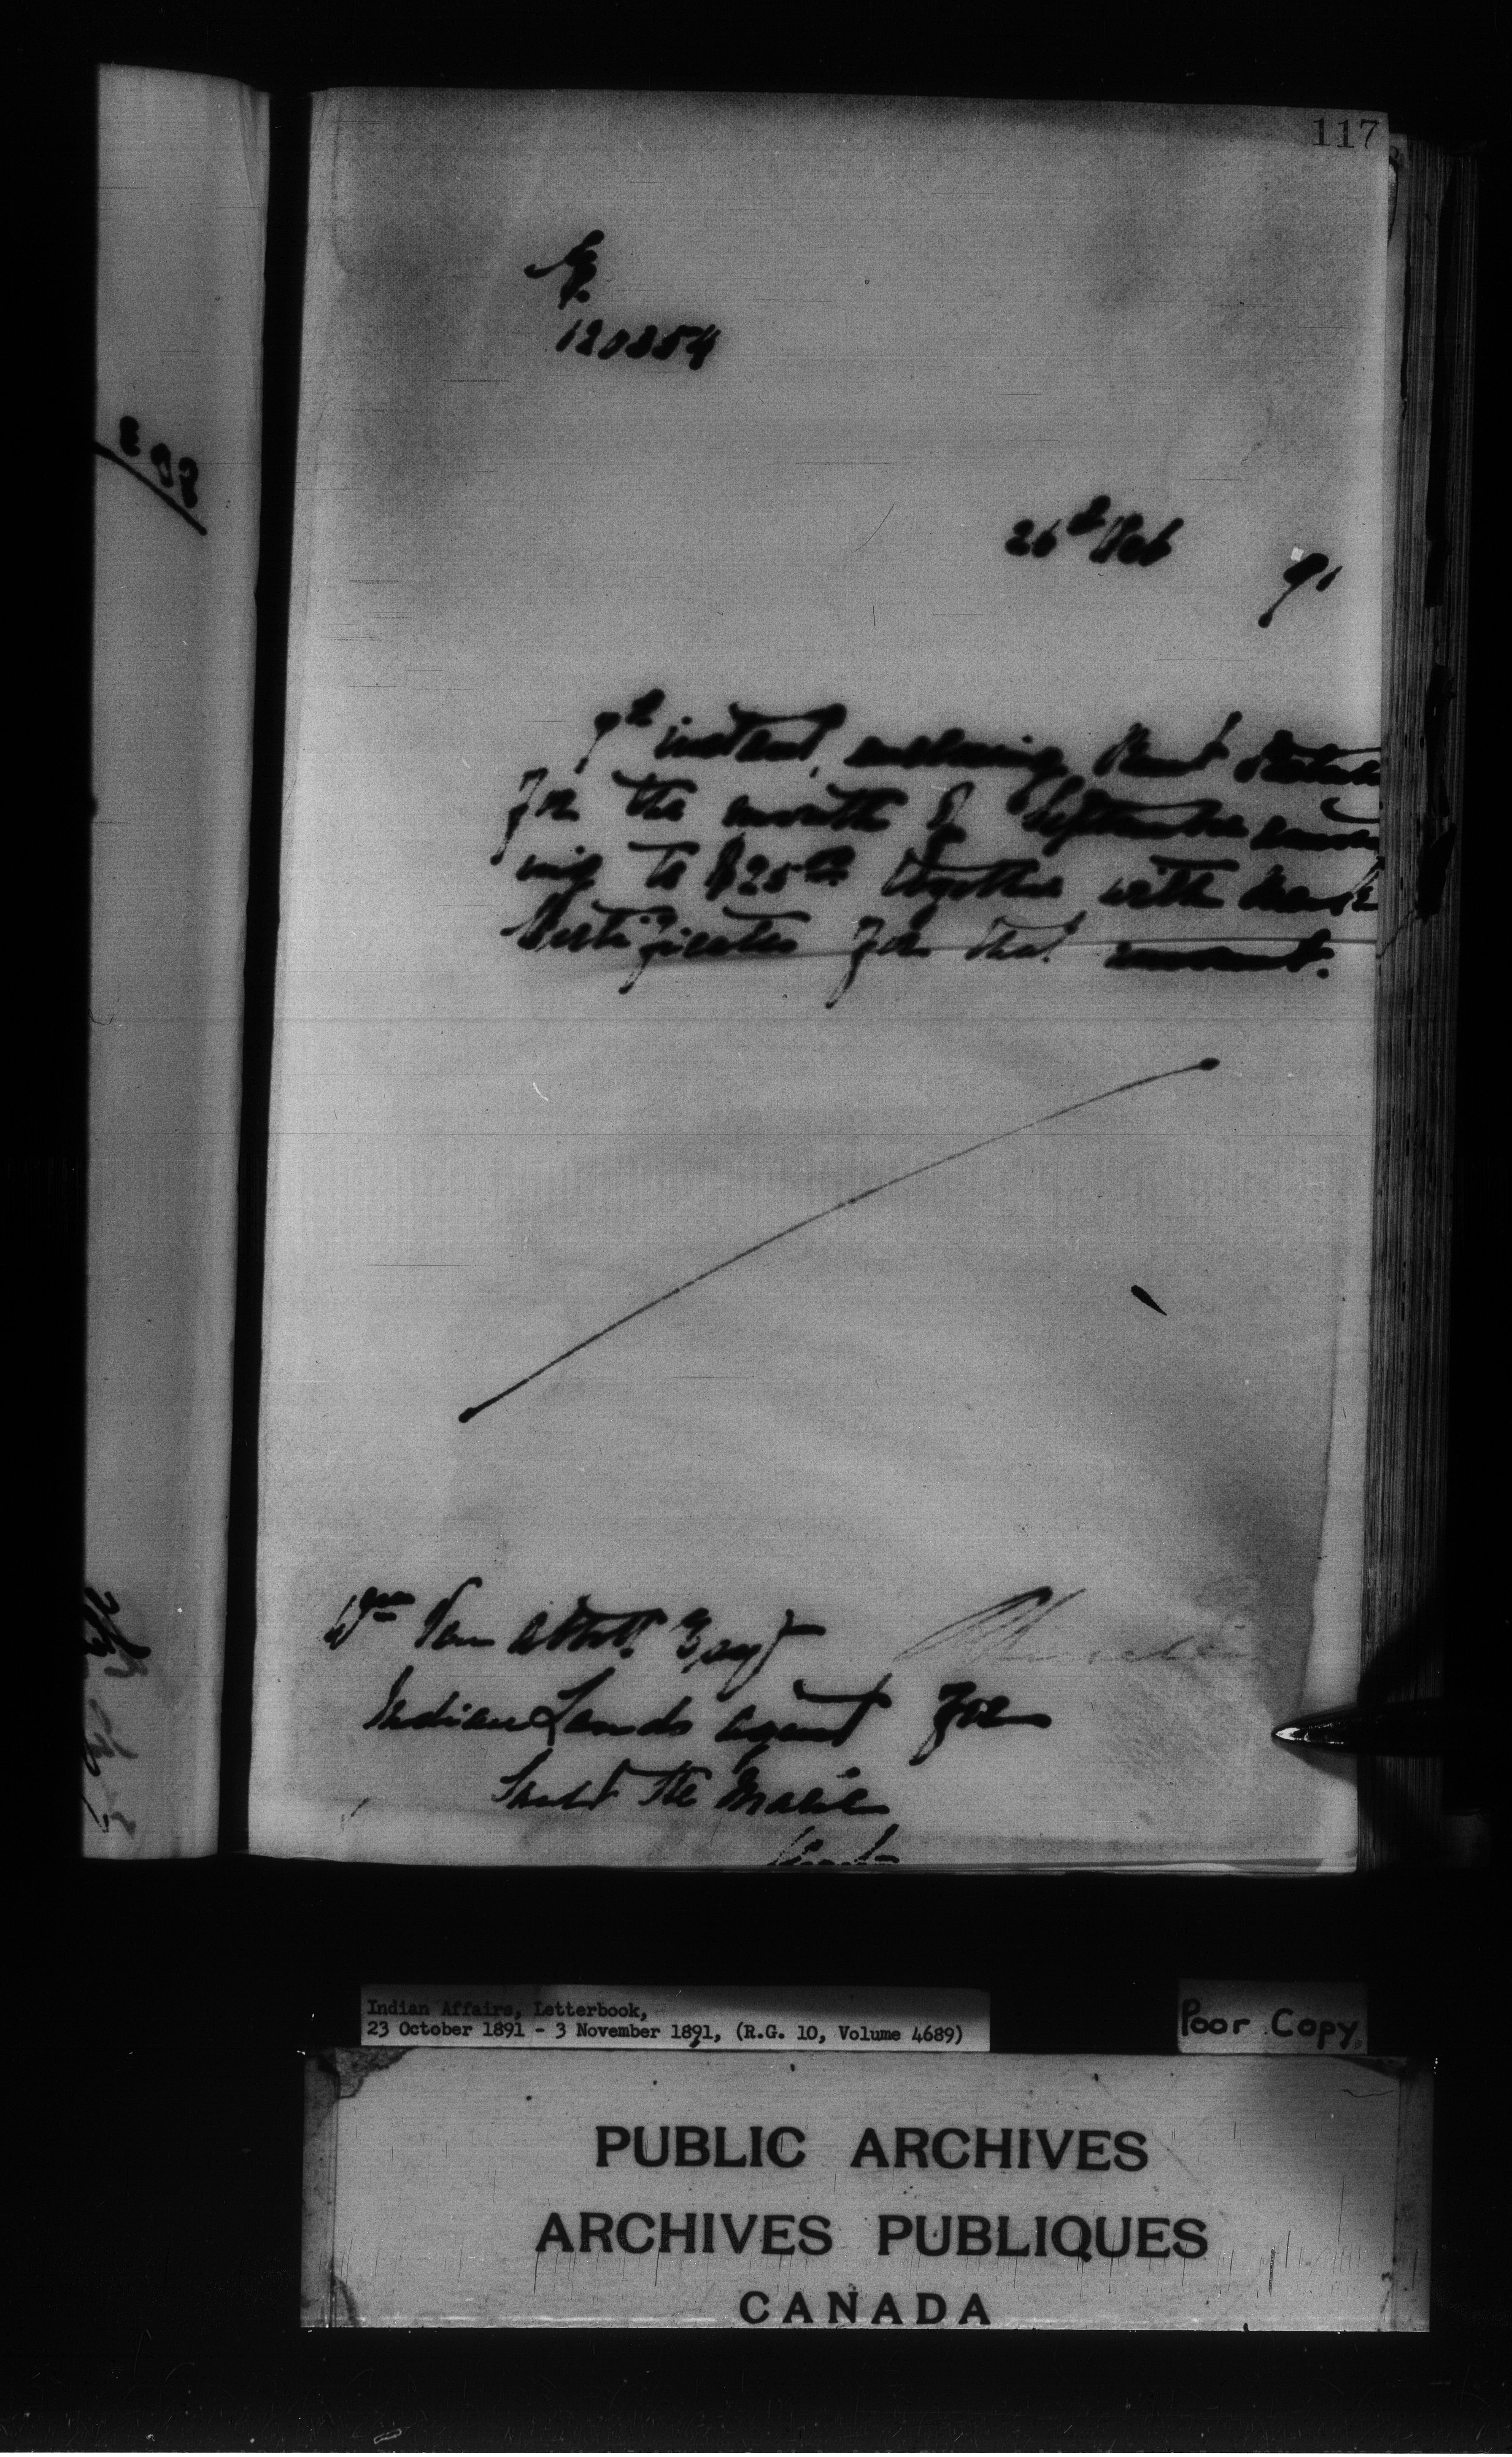 117
120354
26th Oct 91
9th instant, enclosing Rent
for the month of September
ing to $25.00 together with Bank
Certificates for that amount.
Wm Van Abbott Esqr
Indian Lands Agent for
Sault Ste Marie
Ont
Indian Affairs, Letterbook,
23 October 1891 - 3 November 1891, (R.G. 10, Volume 4689)
Poor Copy
PUBLIC ARCHIVES
ARCHIVES PUBLIQUES
CANADA